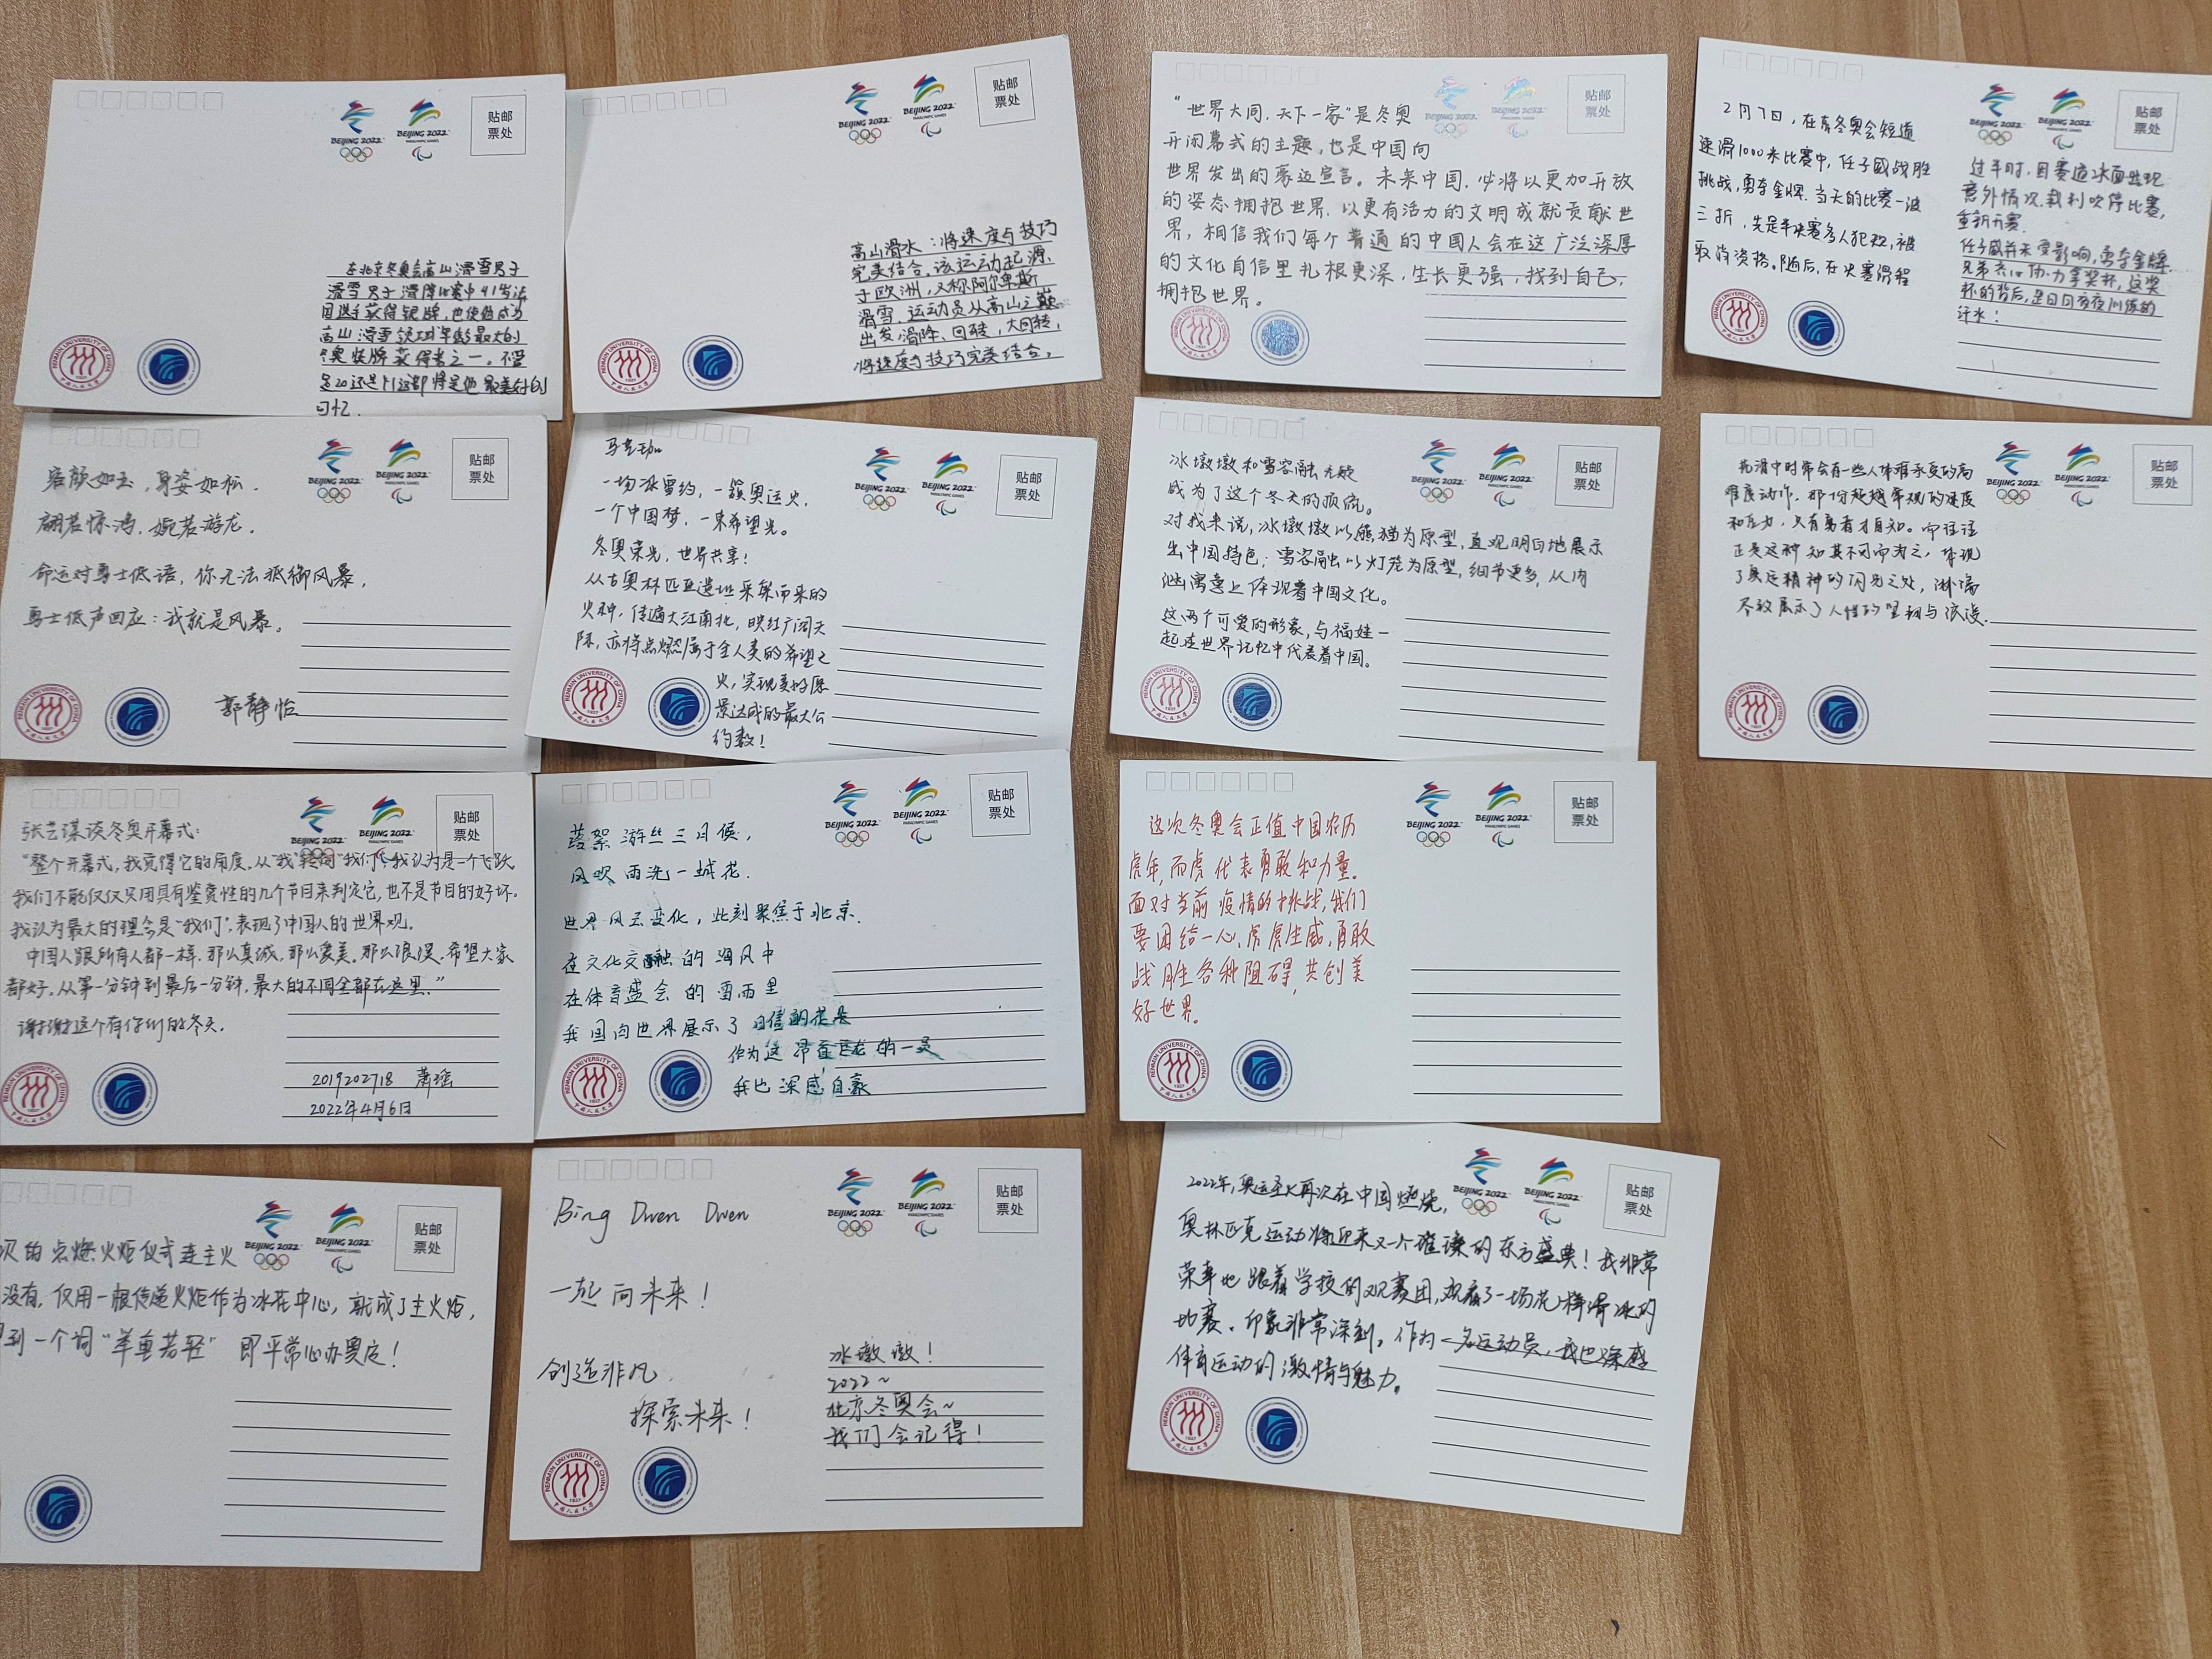 BEIJING 2022
BEIJING 2022
PARALYMPIC GAMES
贴邮
票处
在北京冬奥会高山滑雪男子
滑雪男子滑降比赛中41岁法
国选手获得银牌,也使他成为
高山滑雪领域年龄最大的
冬奥奖牌获得者之一。不管
是20还是41这都将是他最美好的
回忆.
RENMIN UNIVERSITY OF CHINA
1937
中国人民大学
BEIJING 2022
BEIJING 2022
PARALYMPIC GAMES
贴邮
票处
高山滑水:将速度与技巧
完美结合.该运动起源
于欧洲,又称阿尔卑斯
滑雪.运动员从高山之巅
出发,滑降、回转,大回转,
将速度与技巧完美结合,
RENMIN UNIVERSITY OF CHINA
1937
中国人民大学
贴邮
票处
“世界大同,天下一家”是冬奥
开闭幕式的主题,也是中国向
世界发出的豪迈宣言。未来中国,必将以更加开放
的姿态拥抱世界,以更有活力的文明成就贡献世
界,相信我们每个普通的中国人会在这广泛深厚
的文化自信里扎根更深,生长更强,找到自己,
拥抱世界。
BEIJING 2022
BEIJING 2022
贴邮
票处
2月7日,在京冬奥会短道
速滑1000米比赛中,任子威战胜
挑战,勇夺金牌.当天的比赛一波
三折,先是半决赛多人犯规,被
取消资格.随后,在决赛滑程
过半时,因赛道冰面出现
意外情况,裁判吹停比赛,
重新开赛.
任子威并未受影响,勇夺金牌.
兄弟齐心协力拿奖杯,这奖
杯的背后,是日日夜夜训练的
汗水!
BEIJING 2022
BEIJING 2022
PARALYMPIC GAMES
贴邮
票处
容颜如玉,身姿如松.
翩若惊鸿,婉若游龙.
命运对勇士低语,你无法抵御风暴,
勇士低声回应:我就是风暴。
郭静怡
BEIJING 2022
BEIJING 2022
PARALYMPIC GAMES
贴邮
票处
一场冰雪约,一簇奥运火,
一个中国梦,一束希望光。
冬奥荣光,世界共享!
从古奥林匹亚遗址采集而来的
火种,传遍大江南北,映红广阔天
际,亦将点燃属于全人类的希望之
火,实现美好愿
景达成的最大公
约数!
BEIJING 2022
BEIJING 2022
PARALYMPIC GAMES
贴邮
票处
冰墩墩和雪容融无疑
成为了这个冬天的顶流。
对我来说,冰墩墩以熊猫为原型,直观明白地展示
出中国特色;雪容融以灯笼为原型,细节更多,从内
涵寓意上体现着中国文化。
这两个可爱的形象,与福娃一
起在世界记忆中代表着中国。
BEIJING 2022
BEIJING 2022
PARALYMPIC GAMES
贴邮
票处
花滑中时常会有一些人体难承受的高
难度动作.那份超越常规的速度
和压力,只有勇者才自知。而往往
正是这种知其不可而为之,体现
了奥运精神的闪光之处,淋漓
尽致展示了人性的坚韧与浪漫.
BEIJING 2022
BEIJING 2022
贴邮
票处
张艺谋谈冬奥开幕式:
“整个开幕式,我觉得它的角度,从“我”转向“我们”,我认为是一个飞跃
我们不能仅仅只用具有鉴赏性的几个节目来判定它,也不是节目的好坏.
我认为最大的理念是“我们”,表现了中国人的世界观.
中国人跟所有人都一样,那么真诚,那么爱美.那么浪漫.希望大家
都好.从第一分钟到最后一分钟,最大的不同全部在这里.”
谢谢这个有你们的冬天.
2019202718 萧瑶
2022年4月6日
BEIJING 2022
BEIJING 2022
PARALYMPIC GAMES
贴邮
票处
游丝三月候,
风吹雨洗一城花.
世界风云变化,此刻聚焦于北京.
在文化交融的海风中
在体育盛会的雪雨里
我国向世界展示了自信的
作为这昂首巨龙的一员
我也深感自豪
BEIJING 2022
BEIJING 2022
PARALYMPIC GAMES
贴邮
票处
这次冬奥会正值中国农历
虎年,而虎代表勇敢和力量.
面对当前疫情的挑战,我们
要团结一心,虎虎生威,勇敢
战胜各种阻碍,共创美
好世界.
BEIJING 2022
BEIJING 2022
PARALYMPIC GAMES
贴邮
票处
次的点燃火炬仪式连主火
没有,仅用一根传递火炬作为冰花中心,就成了主火炬,
到一个词“举重若轻” 即平常心办奥运!
BEIJING 2022
BEIJING 2022
PARALYMPIC GAMES
贴邮
票处
Bing Dwen Dwen
一起向未来!
创造非凡,
探索未来!
冰墩墩!
2022~
北京冬奥会~
我们会记得!
BEIJING 2022
BEIJING 2022
PARALYMPIC GAMES
贴邮
票处
2022年,奥运圣火再次在中国燃烧,
奥林匹克运动将迎来又一个璀璨的东方盛典!我非常
荣幸地跟着学校的观赛团,观看了一场花样滑冰的
比赛,印象非常深刻。作为一名运动员,我也深感
体育运动的激情与魅力。